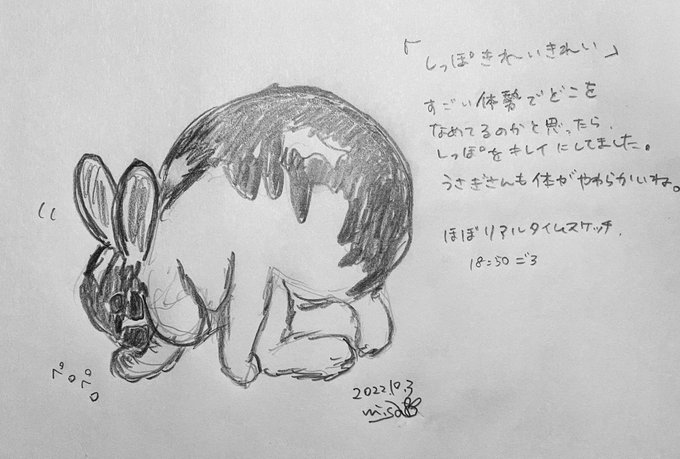 「しっぽきれいきれい」
すごい体勢でどこを
なめてるのかと思ったら、
しっぽをキレイにしてました。
うさぎさんも体がやわらかいね。
ほぼリアルタイムスケッチ.
18:50ごろ
ペロペロ
2022.10.3
misa